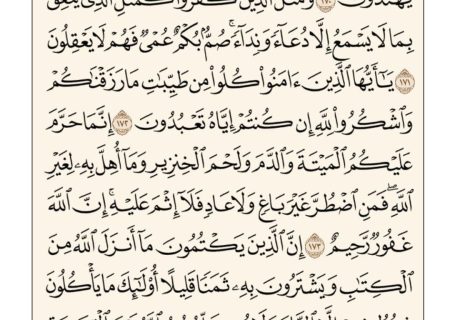 يَهْتَدُونَ ١٧٠ وَمَثَلُ ٱلَّذِينَ كَفَرُوا۟ كَمَثَلِ ٱلَّذِى يَنْعِقُ
بِمَا لَا يَسْمَعُ إِلَّا دُعَآءً وَنِدَآءً ۚ صُمٌّۢ بُكْمٌ عُمْىٌ فَهُمْ لَا يَعْقِلُونَ
١٧١ يَـٰٓأَيُّهَا ٱلَّذِينَ ءَامَنُوا۟ كُلُوا۟ مِن طَيِّبَـٰتِ مَا رَزَقْنَـٰكُمْ
وَٱشْكُرُوا۟ لِلَّهِ إِن كُنتُمْ إِيَّاهُ تَعْبُدُونَ ١٧٢ إِنَّمَا حَرَّمَ
عَلَيْكُمُ ٱلْمَيْتَةَ وَٱلدَّمَ وَلَحْمَ ٱلْخِنزِيرِ وَمَآ أُهِلَّ بِهِۦ لِغَيْرِ
ٱللَّهِ ۖ فَمَنِ ٱضْطُرَّ غَيْرَ بَاغٍ وَلَا عَادٍ فَلَآ إِثْمَ عَلَيْهِ ۚ إِنَّ ٱللَّهَ
غَفُورٌ رَّحِيمٌ ١٧٣ إِنَّ ٱلَّذِينَ يَكْتُمُونَ مَآ أَنزَلَ ٱللَّهُ مِنَ
ٱلْكِتَـٰبِ وَيَشْتَرُونَ بِهِۦ ثَمَنًا قَلِيلًا ۙ أُو۟لَـٰٓئِكَ مَا يَأْكُلُونَ